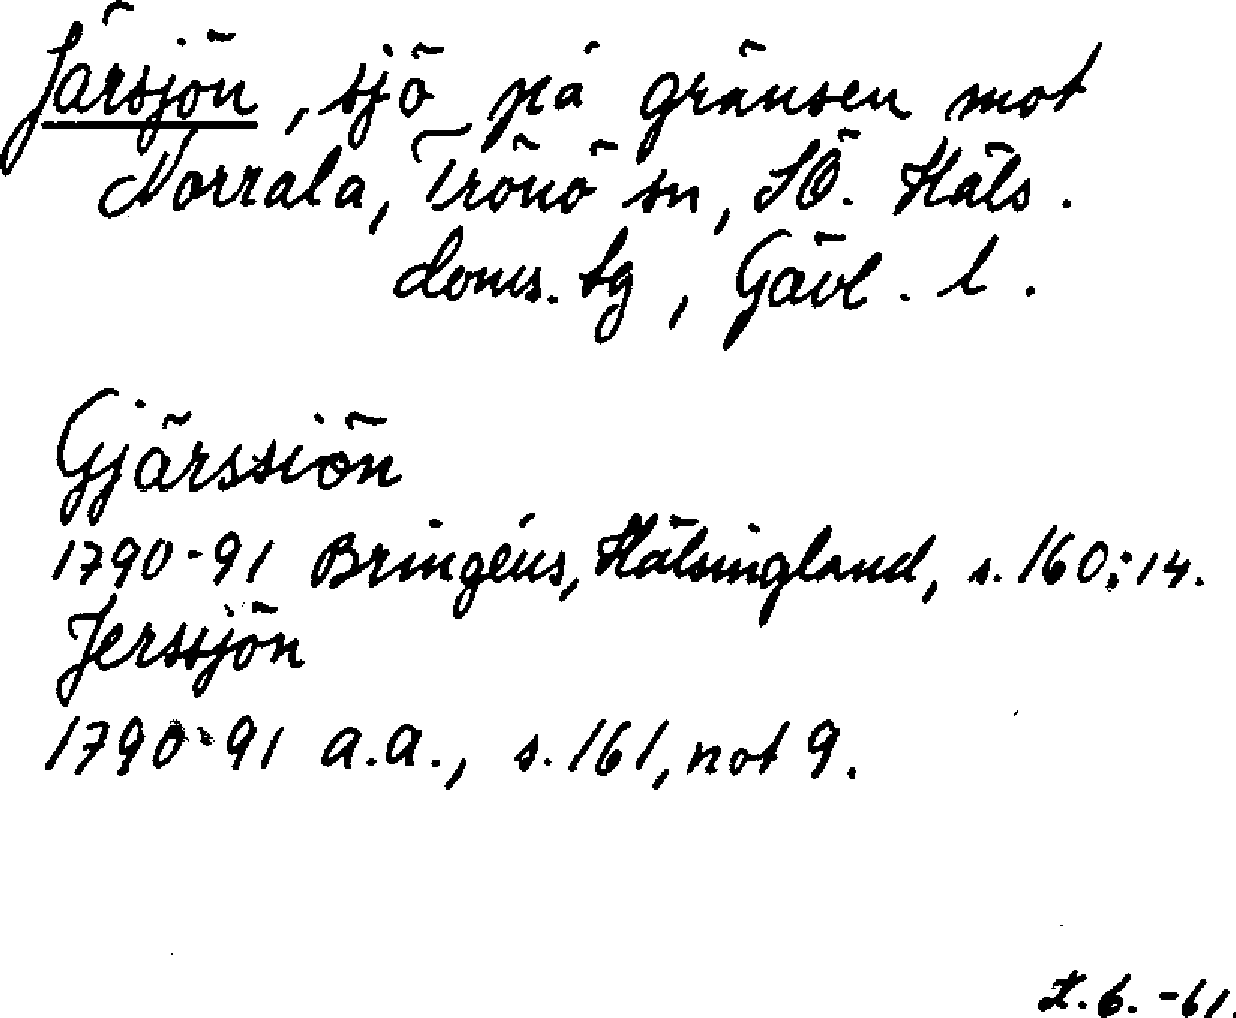 Järsjön, sjö på gränsen mot
Norrala, Trönö sn, SÖ. Häls.
doms. tg, Gävl. l.
Gjärssiön
1790-91 Bringéus, Hälsingland, s. 160:14.
Jerssjön
1790-91 a.a., s. 161, not 9.
6. -61.